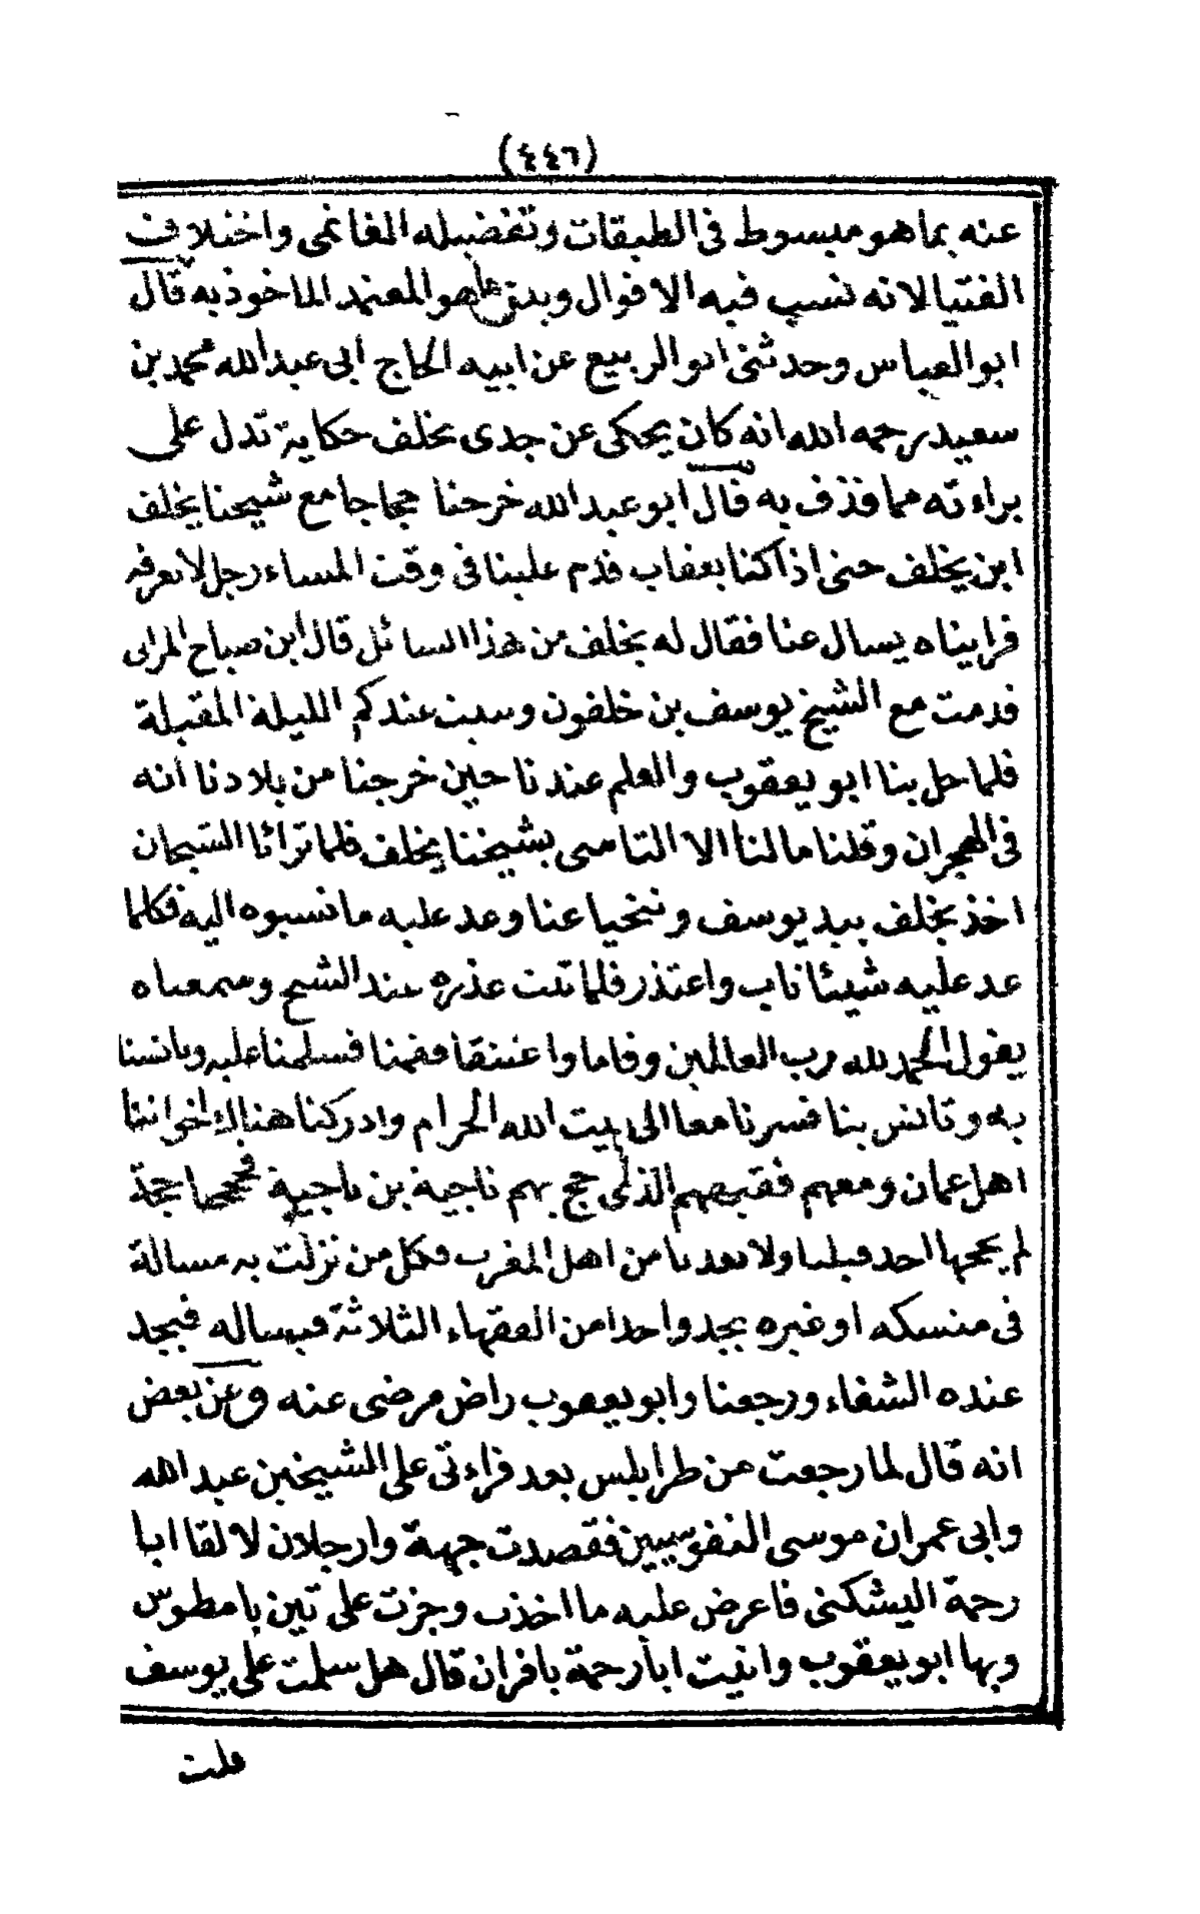 (٤٤٦)
عنه بما هو مبسوط فى الطبقات وتفضيله الغانمى واختلاف
الفتيا لانه نسب فيه الاقوال وبين ما هو المعتمد الماخوذ به قال
ابو العباس وحدثنى ابو الربيع عن ابيه الحاج ابى عبد الله محمد بن
سعيد رحمه الله انه كان يحكى عن جدى يخلف حكاية تدل على
براءته مما قذف به قال ابو عبد الله خرجنا حجاجا مع شيخنا يخلف
ابن يخلف حتى اذا كنا بعقاب قدم علينا فى وقت المساء رجل لا نعرفه
فرايناه يسال عنا فقال له يخلف من هذا السائل قال ابن صباح المزاتى
قدمت مع الشيخ يوسف بن خلفون وسبت عندكم الليلة المقبلة
فلما حل بنا ابو يعقوب والعلم عندنا حين خرجنا من بلادنا انه
فى الهجران وقلنا مالنا الا التاسى بشيخنا يخلف فلما ترائا الشيخان
اخذ يخلف بيد يوسف وتنحيا عنا وعد عليه ما نسبوه اليه فكلما
عد عليه شيئا تاب واعتذر فلما تمت عذره عند الشيخ وسمعناه
يقول الحمد لله رب العالمين وقاما واعتنقا فقمنا فسلمنا عليه وتانسنا
به وتانس بنا فسرنا معا الى بيت الله الحرام وادركنا هنالك اخواننا
اهل عمان ومعهم فقيههم الذى حج بهم ناجية بن ناجية فحججنا حجة
لم يحجها احد قبلنا ولا بعدنا من اهل المغرب فكل من نزلت به مسالة
فى منسكه او غيره يجد واحدا من الفقهاء الثلاثة فيساله فيجد
عنده الشفاء ورجعنا وابو يعقوب راض مرضى عنه وعن بعض
انه قال لما رجعت من طرابلس بعد قراءتى على الشيخين عبد الله
وابى عمران موسى النفوسيين فقصدت جهة وارجلان لالقا ابا
رحمة اليشكنى فاعرض عليه ما اخذت وجزت على تين باماطوس
وبها ابو يعقوب واتيت ابا رحمة بافران قال هل سلمت على يوسف
قلت